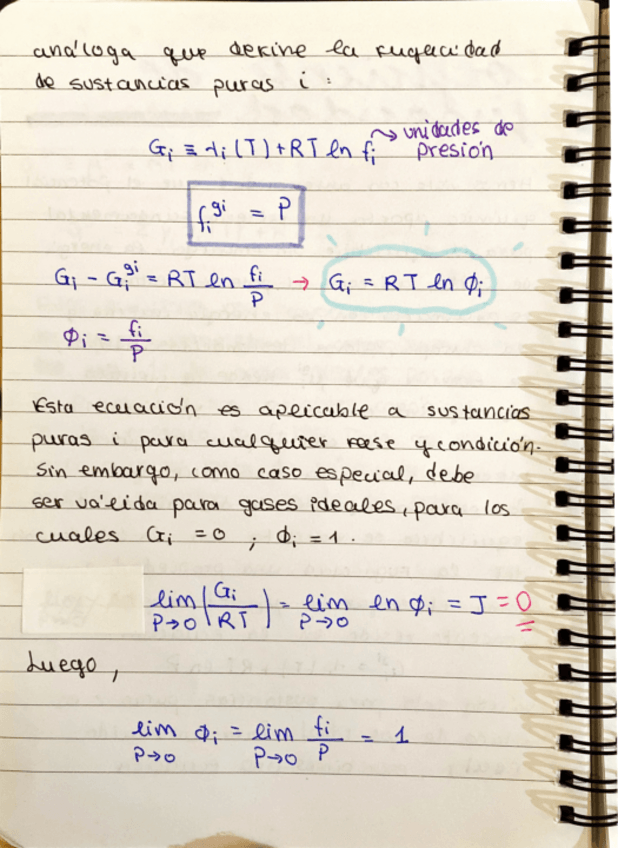 análoga que define la fugacidad
de sustancias puras i:
Gᵢ ≡ λᵢ(T) + RT ln fᵢ → unidades de presión
fᵢᵍⁱ = P
Gᵢ - Gᵢᵍⁱ = RT ln fᵢ/P → Gᵢ = RT ln ϕᵢ
ϕᵢ = fᵢ/P
Esta ecuación es aplicable a sustancias
puras i para cualquier fase y condición.
Sin embargo, como caso especial, debe
ser válida para gases ideales, para los
cuales Gᵢ = 0 ; ϕᵢ = 1.
lim P→0 (Gᵢ/RT) = lim P→0 ln ϕᵢ = J = 0
Luego,
lim P→0 ϕᵢ = lim P→0 fᵢ/P = 1